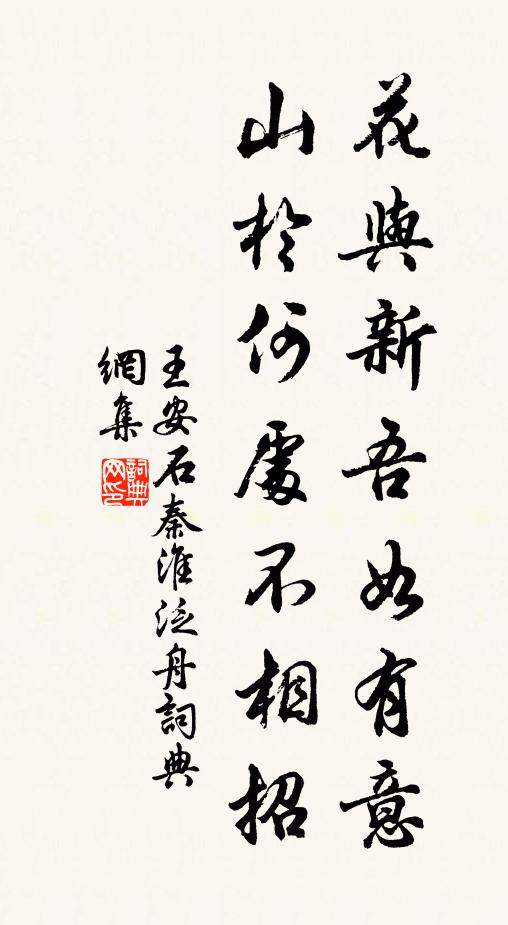 花與新吾如有意
山於何處不相招
王安石秦淮泛舟詞典
網集
詞典
网印